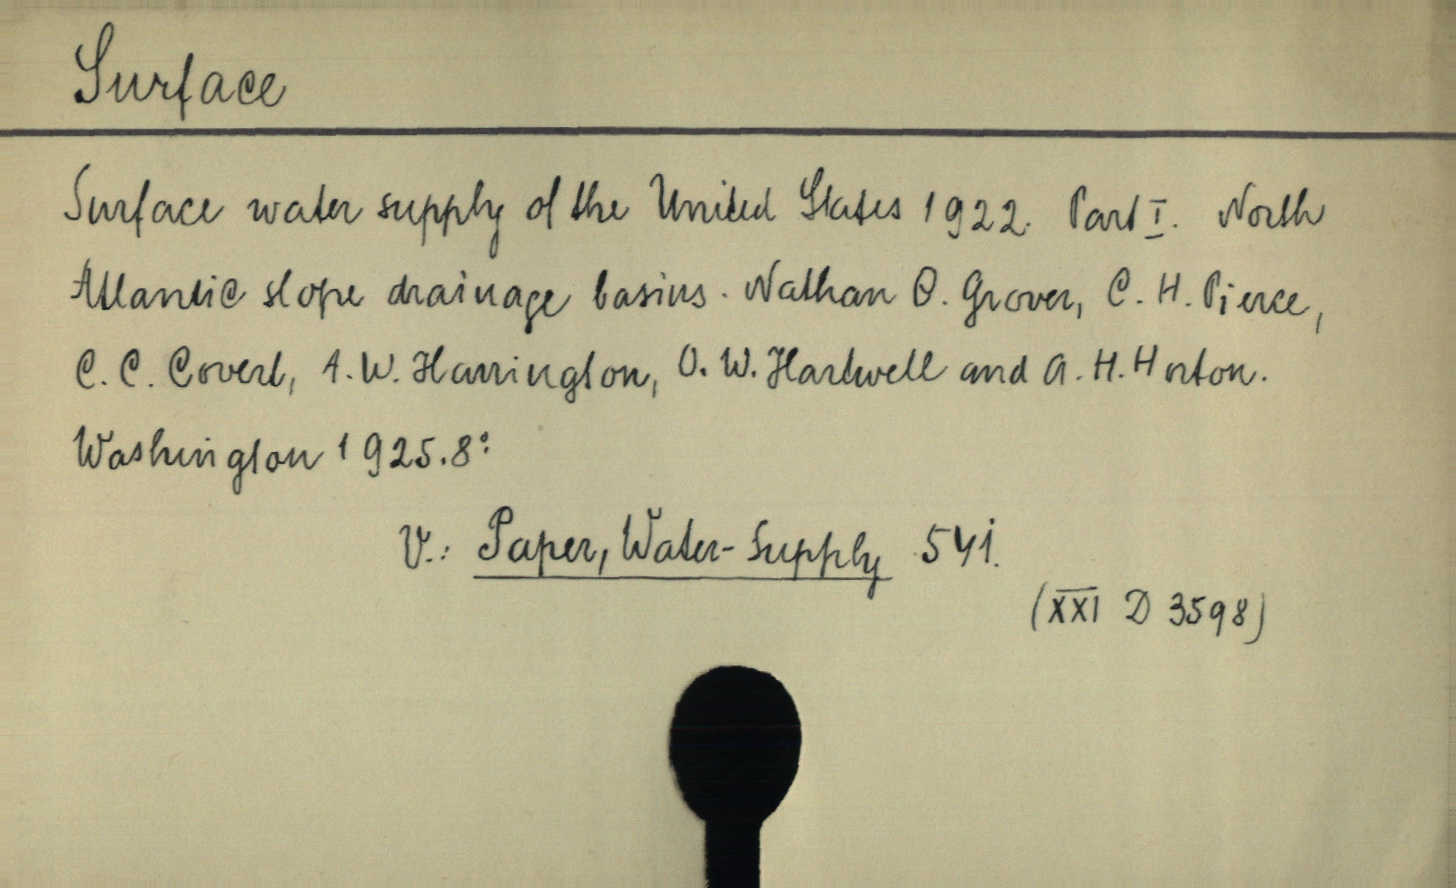 Surface
Surface water supply of the United States 1922. Part I. North
Atlantic slope drainage basins. Nathan O. Grover, C. H. Pierce,
C. C. Covert, A. W. Harrington, O. W. Hartwell and A. H. Horton.
Washington 1925. 8°
V.: Paper, Water-Supply 541.
(XXI D 3598)